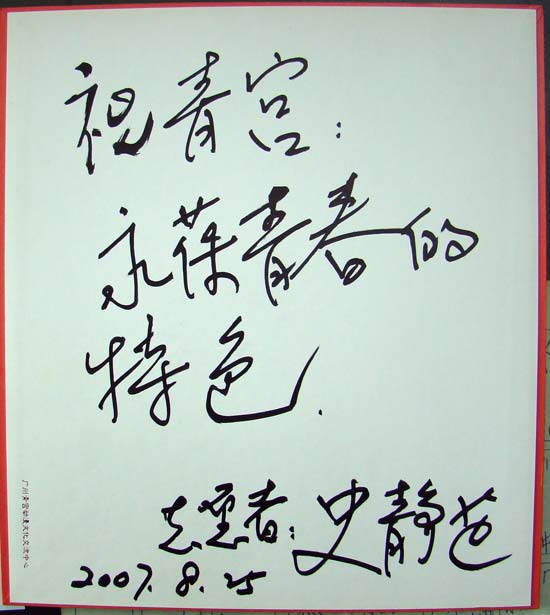 祝青宫：
永葆青春的
特色.
志愿者：史静
2007.8.25
广州青宫动漫文化交流中心